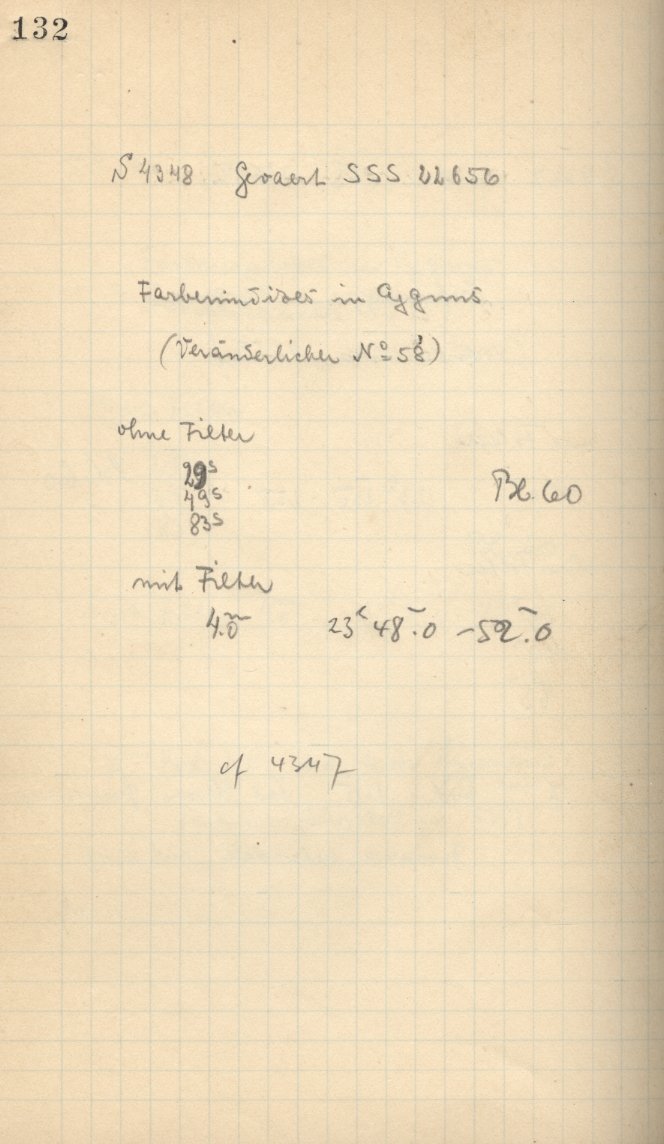 132
S 4348 Gevaert SSS 22656
Farbenindizes in Cygnus
(Veränderlicher Nº 58)
ohne Filter
29s
49s
83s
Bl. 60
mit Filter
4.m0 23h 48m.0 – 52m.0
cf 4347